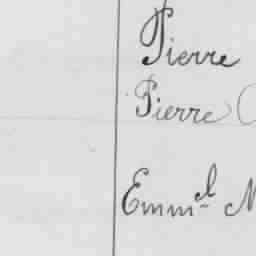 Pierre
Pierre
Emm.el